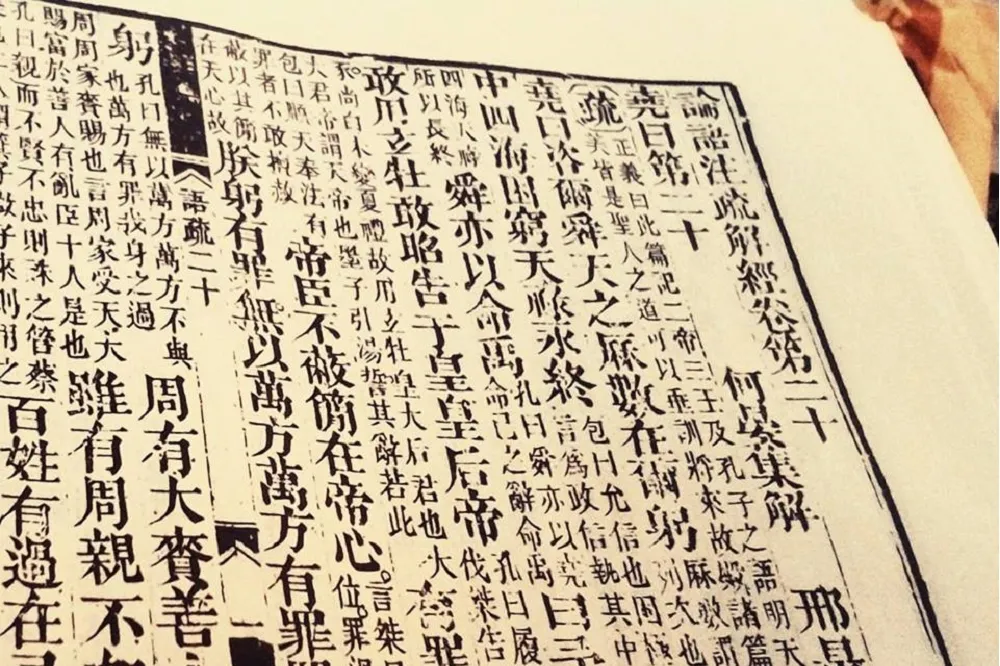 論語注疏解經卷第二十
堯曰第二十 何晏集解 邢昺
疏 正義曰此篇記二帝三王及孔子之語明天
美皆是聖人之道可以垂訓將來故殿諸篇
堯曰咨爾舜天之厤數在爾躬 厤數謂
列次也
中四海困窮天祿永終 包曰允信也困極
言爲政信執其中
四海天祿
所以長終 舜亦以命禹 孔曰舜亦以堯
命己之辭命禹 曰予
敢用玄牡敢昭告于皇皇后帝 孔曰履
伐桀告
尚白未變夏禮故用玄牡皇大后君也大
大君帝謂天帝也墨子引湯誓其辭若此 有罪
包曰順天奉法有
罪者不敢擅赦 帝臣不蔽簡在帝心 言桀
位罪
蔽以其簡
在天心故 朕躬有罪無以萬方萬方有罪
語疏二十 一
躬 孔曰無以萬方萬方不與
也萬方有罪我身之過 周有大賚善
周周家賚賜也言周家受天大
賜富於善人有亂臣十人是也 雖有周親不
孔曰親而不賢不忠則誅之管蔡
來則用之 百姓有過在